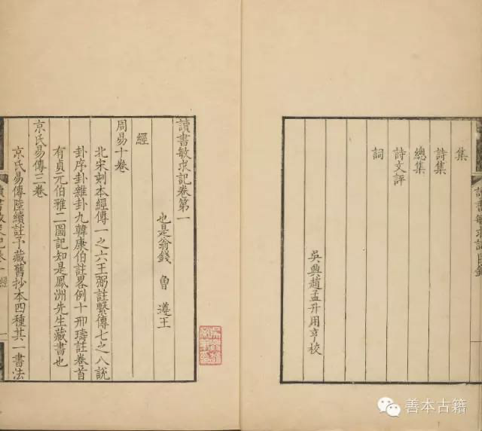 集
詩集
總集
詩文評
詞
吳興趙孟升用亨校
讀書敏求記卷第一
也是翁錢 曾 遵王
經
周易十卷
北宋刻本經傳一之六王弼註繫傳七之八說
卦序卦雜卦九韓康伯註畧例十邢璹註卷首
有貞元伯雅二圖記知是鳳洲先生藏書也
京氏易傳三卷
京氏易傳陸績註予藏舊抄本四種其一書法
善本古籍